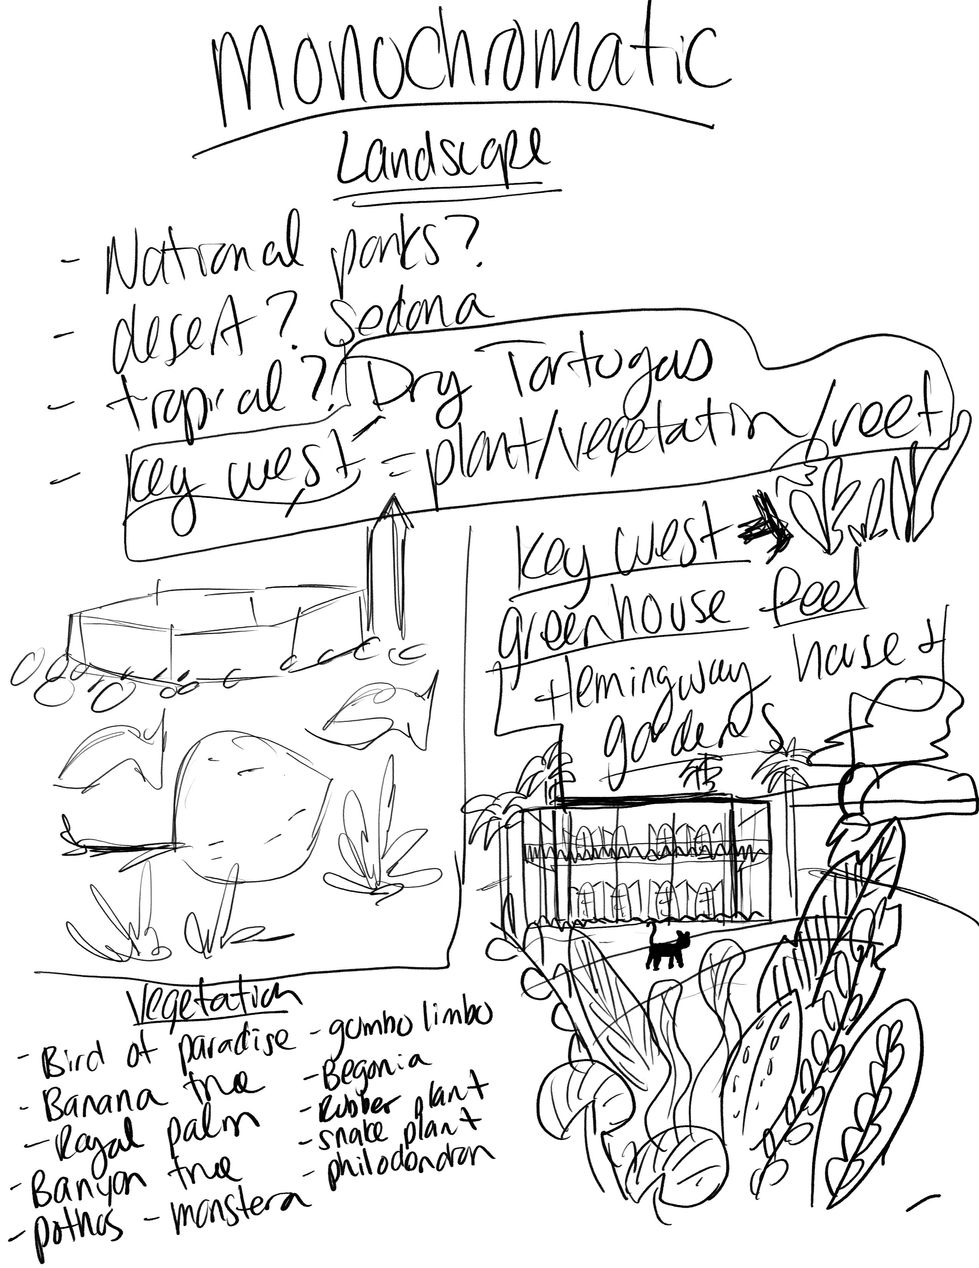 Monochromatic
Landscape
- National parks?
- desert? Sedona
- tropical?? Dry Tortugas
- key west = plant/vegetation/reef
key west
greenhouse feel
Hemingway house &
gardens
Vegetation
- Bird of paradise
- Banana tree
- Royal palm
- Banyan tree
- pothos - monstera
- gumbo limbo
- Begonia
- Rubber plant
- snake plant
- philodendron